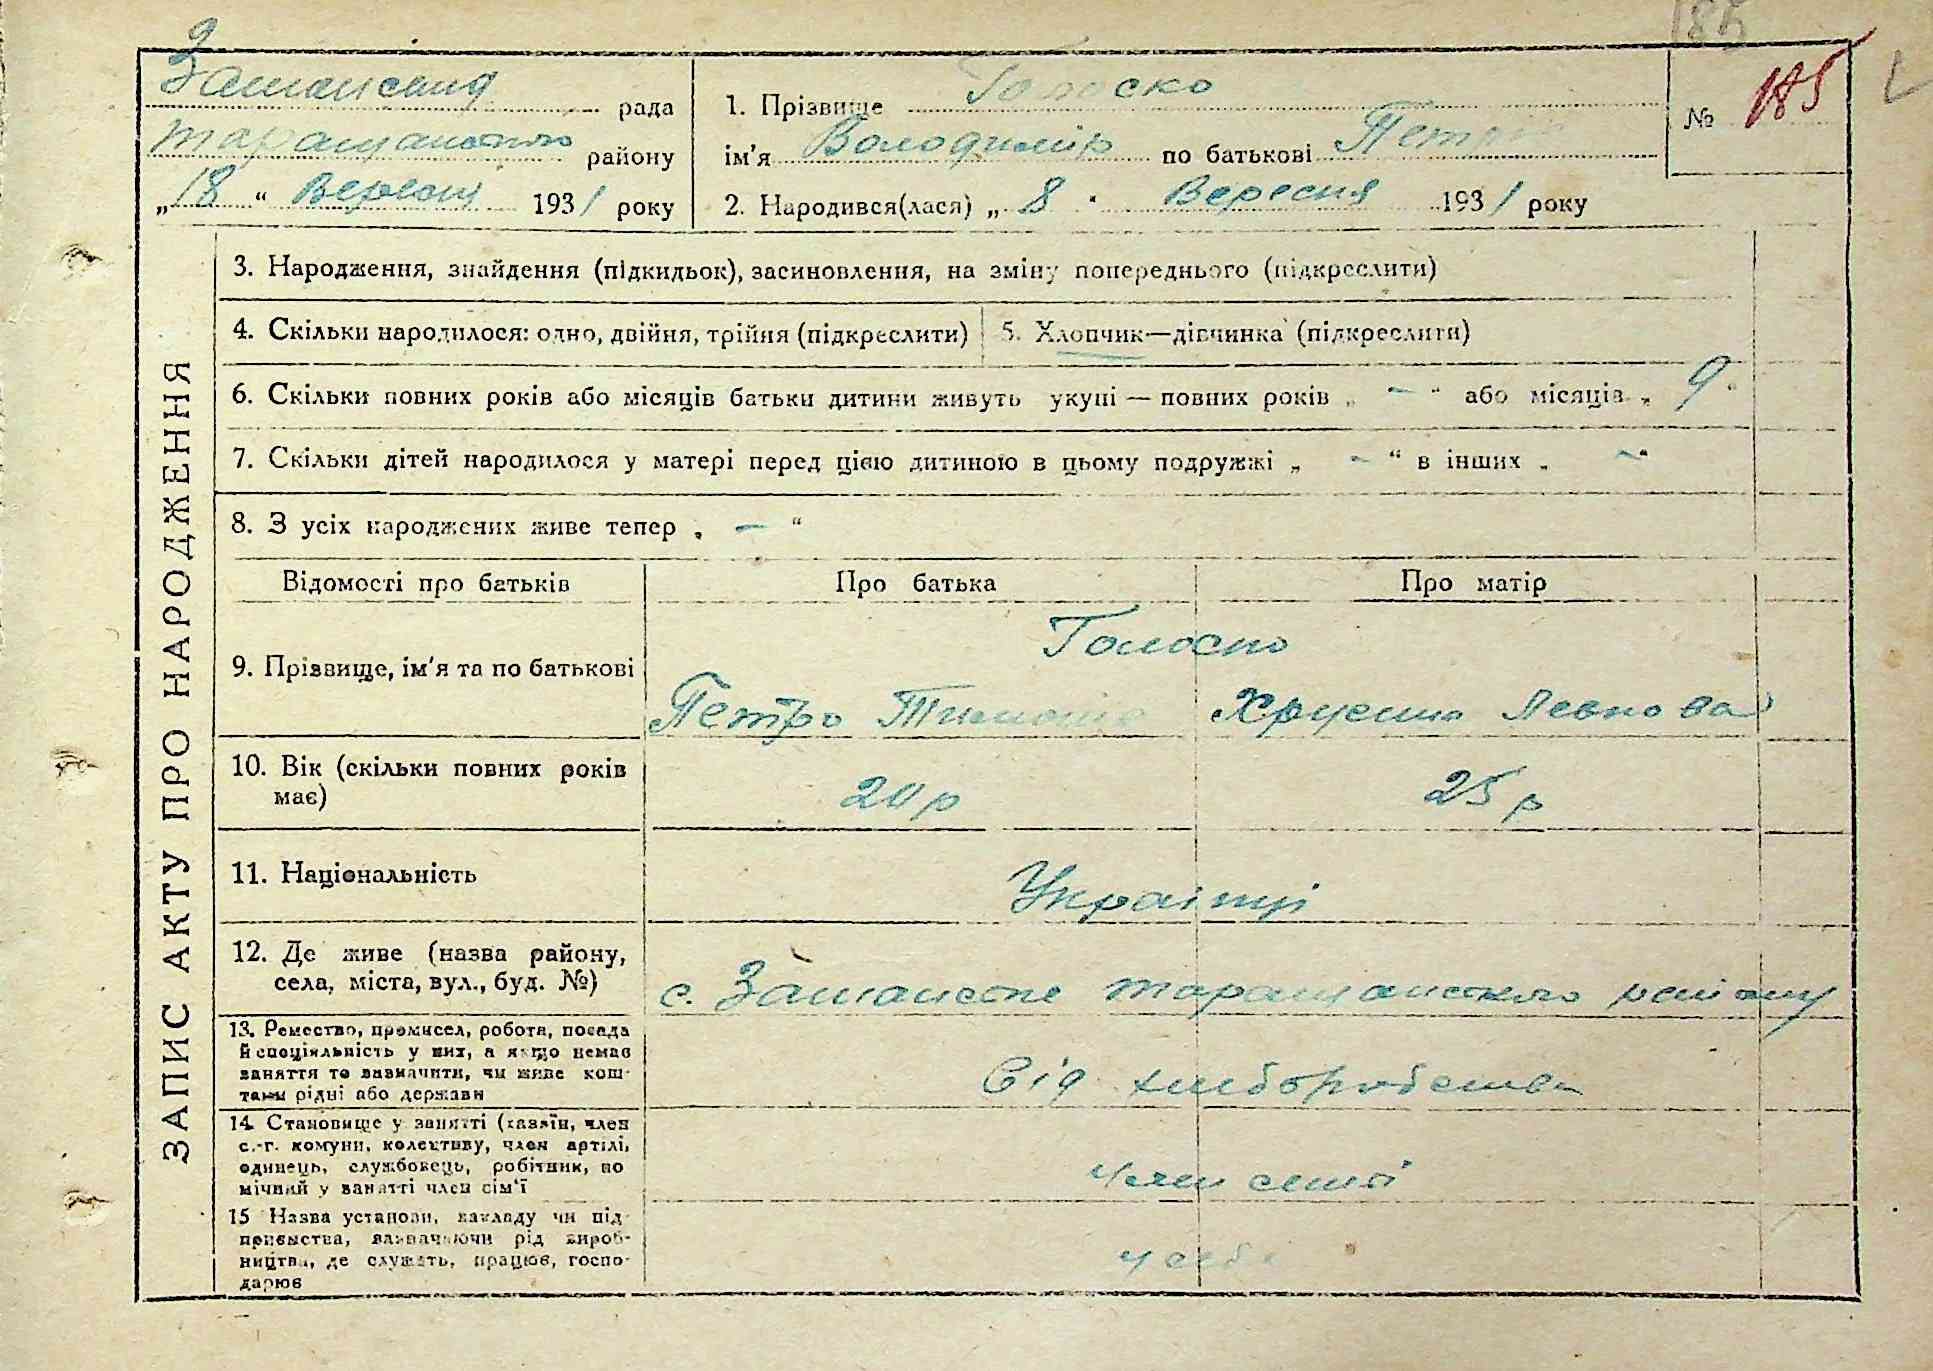 185
рада
1. Прізвище Голоско
№ 185
району
ім'я Володимір по батькові Петро
„18“ Вересня 1931 року
2. Народився(лася) „8“ Вересня 1931 року
ЗАПИС АКТУ ПРО НАРОДЖЕННЯ
3. Народження, знайдення (підкидьок), засиновлення, на зміну попереднього (підкреслити)
4. Скільки народилося: одно, двійня, трійня (підкреслити)
5. Хлопчик—дівчинка (підкреслити)
6. Скільки повних років або місяців батьки дитини живуть укупі — повних років „ — “ або місяців „ 9
7. Скільки дітей народилося у матері перед цією дитиною в цьому подружжі „ — “ в інших „ — “
8. З усіх народжених живе тепер „ — “
Відомості про батьків
Про батька
Про матір
9. Прізвище, ім'я та по батькові
Голоско
Петро
Левкова
10. Вік (скільки повних років має)
20 р
25 р
11. Національність
Українці
12. Де живе (назва району,
села, міста, вул., буд. №)
с.
13. Ремество, промисел, робота, посада
й спеціяльність у них, а якщо немає
заняття то зазначити, чи живе кош-
тами рідні або держави
Від хліборобства
14. Становище у занятті (хазяїн, член
с.-г. комуни, колективу, член артілі,
одинець, службовець, робітник, по
мічний у занятті член сім'ї
член семї
15 Назва установи, закладу чи під-
приємства, зазначаючи рід вироб-
ництва, де служить, працює, госпо-
дарює
у себе